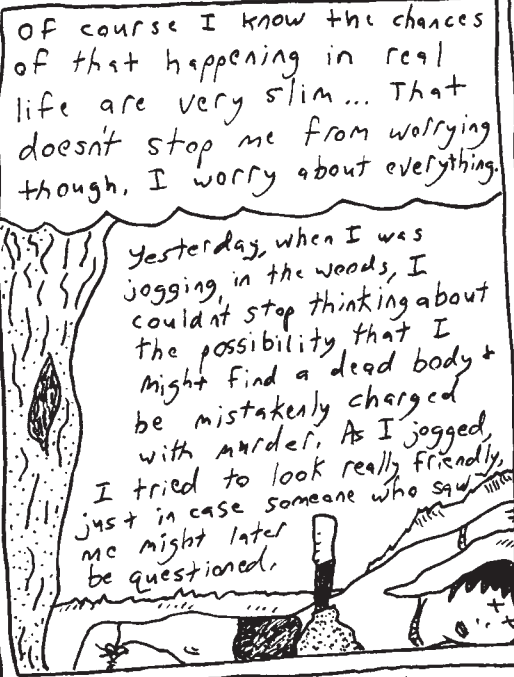 Of course I know the chances
of that happening in real
life are very slim... That
doesn't stop me from worrying
though. I worry about everything.
Yesterday, when I was
jogging in the woods, I
couldnt stop thinking about
the possibility that I
might find a dead body +
be mistakenly charged
with murder. As I jogged,
I tried to look really friendly,
just in case someone who saw
me might later
be questioned.